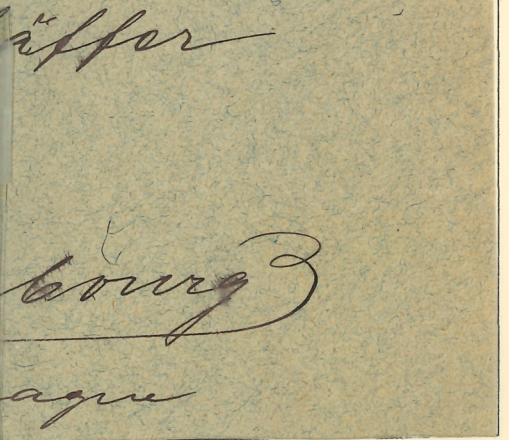 äffer
bourg
ague